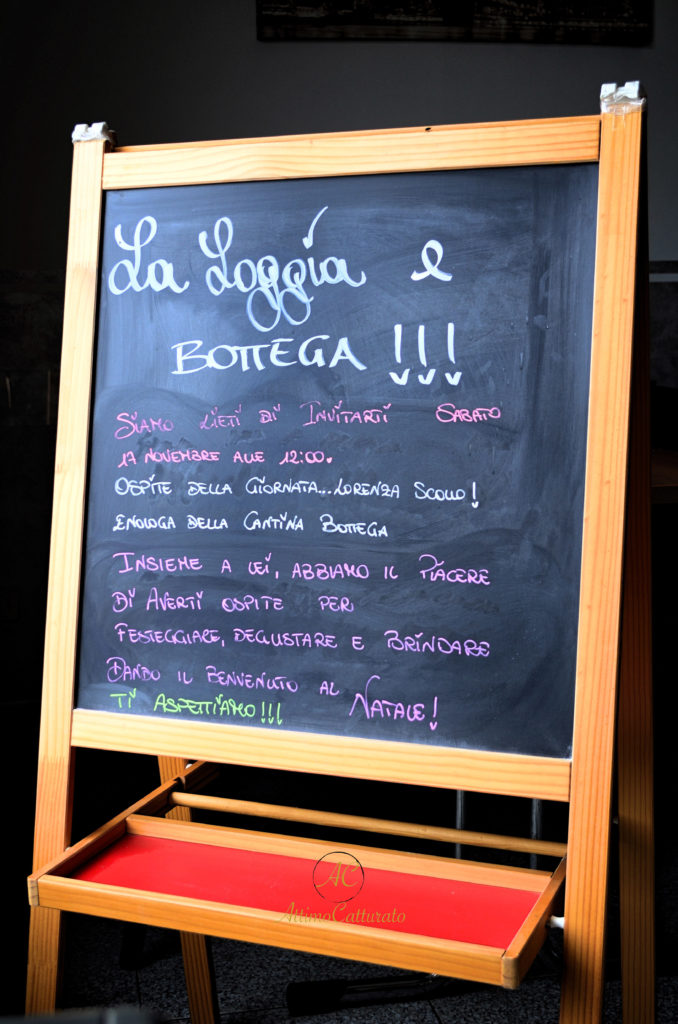 La Loggia e
BOTTEGA !!!
SIAMO LIETI DI INVITARTI SABATO
17 NOVEMBRE ALLE 12:00.
OSPITE DELLA GIORNATA...LORENZA SCOLLO!
ENOLOGA DELLA CANTINA BOTTEGA
INSIEME A LEI, ABBIAMO IL PIACERE
DI AVERTI OSPITE PER
FESTEGGIARE, DEGUSTARE E BRINDARE
DANDO IL BENVENUTO AL NATALE!
TI ASPETTIAMO!!!
AC
AttimoCatturato